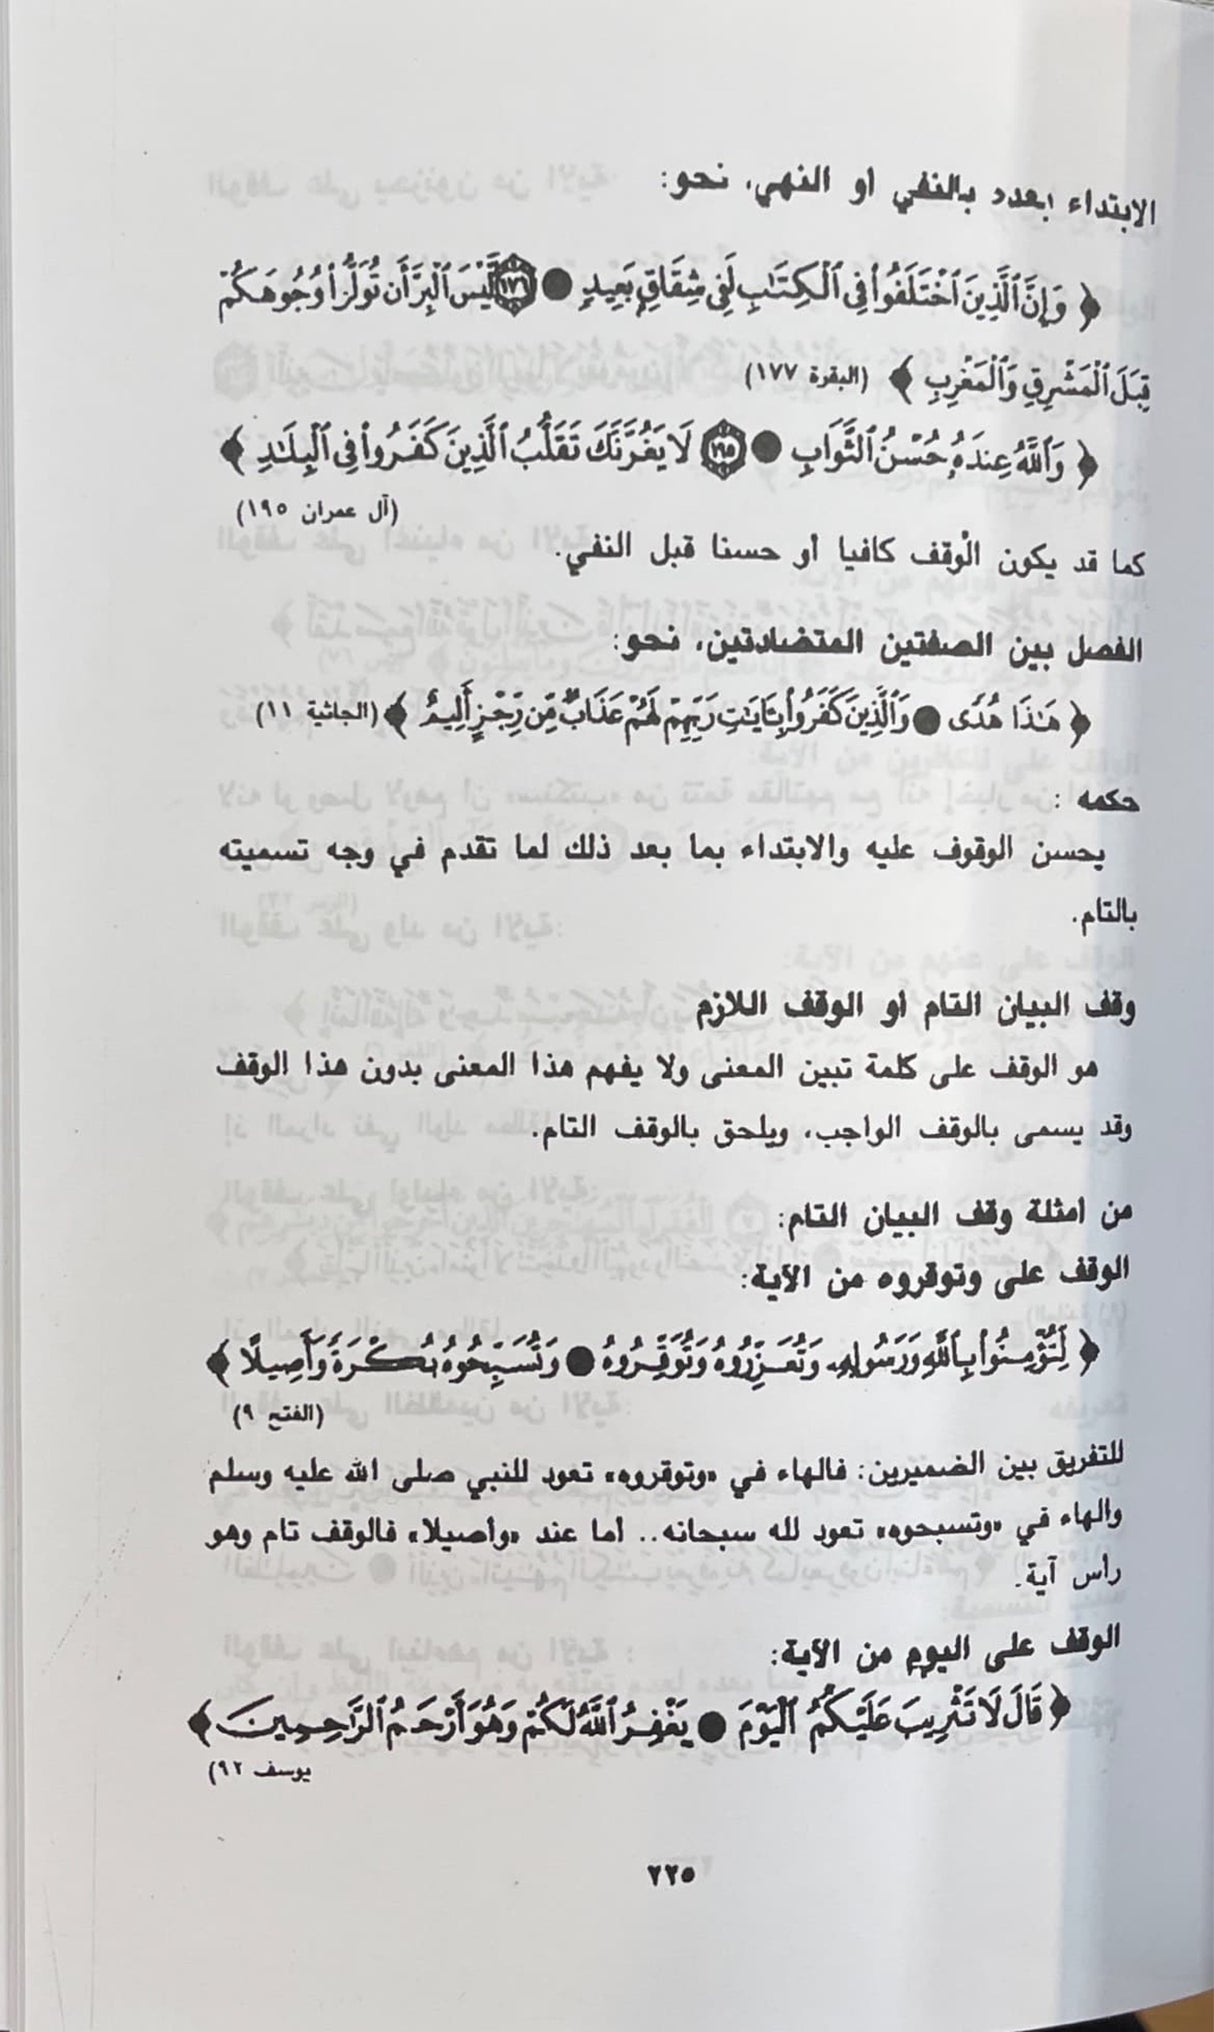 الابتداء بعده بالنفي أو النهي، نحو:
﴿ وَإِنَّ ٱلَّذِينَ ٱخْتَلَفُوا۟ فِى ٱلْكِتَٰبِ لَفِى شِقَاقٍۭ بَعِيدٍ ● ١٧٦ لَّيْسَ ٱلْبِرَّ أَن تُوَلُّوا۟ وُجُوهَكُمْ
قِبَلَ ٱلْمَشْرِقِ وَٱلْمَغْرِبِ ﴾ (البقرة ١٧٧)
﴿ وَٱللَّهُ عِندَهُۥ حُسْنُ ٱلثَّوَابِ ● ١٩٥ لَا يَغُرَّنَّكَ تَقَلُّبُ ٱلَّذِينَ كَفَرُوا۟ فِى ٱلْبِلَٰدِ ﴾
(آل عمران ١٩٥)
كما قد يكون الْوقف كافيا أو حسنا قبل النفي.
الفصل بين الصفتين المتضادتين، نحو:
﴿ هَٰذَا هُدًى ● وَٱلَّذِينَ كَفَرُوا۟ بِـَٔايَٰتِ رَبِّهِمْ لَهُمْ عَذَابٌ مِّن رِّجْزٍ أَلِيمٌ ﴾ (الجاثية ١١)
حكمه :
يحسن الوقوف عليه والابتداء بما بعد ذلك لما تقدم في وجه تسميته
بالتام.
وقف البيان التام أو الوقف اللازم
هو الوقف على كلمة تبين المعنى ولا يفهم هذا المعنى بدون هذا الوقف
وقد يسمى بالوقف الواجب، ويلحق بالوقف التام.
من أمثلة وقف البيان التام:
الوقف على وتوقروه من الآية:
﴿ لِّتُؤْمِنُوا۟ بِٱللَّهِ وَرَسُولِهِۦ وَتُعَزِّرُوهُ وَتُوَقِّرُوهُ ● وَتُسَبِّحُوهُ بُكْرَةً وَأَصِيلًا ﴾
(الفتح ٩)
للتفريق بين الضميرين: فالهاء في «وتوقروه» تعود للنبي صلى الله عليه وسلم
والهاء في «وتسبحوه» تعود لله سبحانه.. أما عند «وأصيلا» فالوقف تام وهو
رأس آية.
الوقف على اليوم من الآية:
﴿ قَالَ لَا تَثْرِيبَ عَلَيْكُمُ ٱلْيَوْمَ ● يَغْفِرُ ٱللَّهُ لَكُمْ وَهُوَ أَرْحَمُ ٱلرَّٰحِمِينَ ﴾
يوسف ٩٢)
٢٢٥